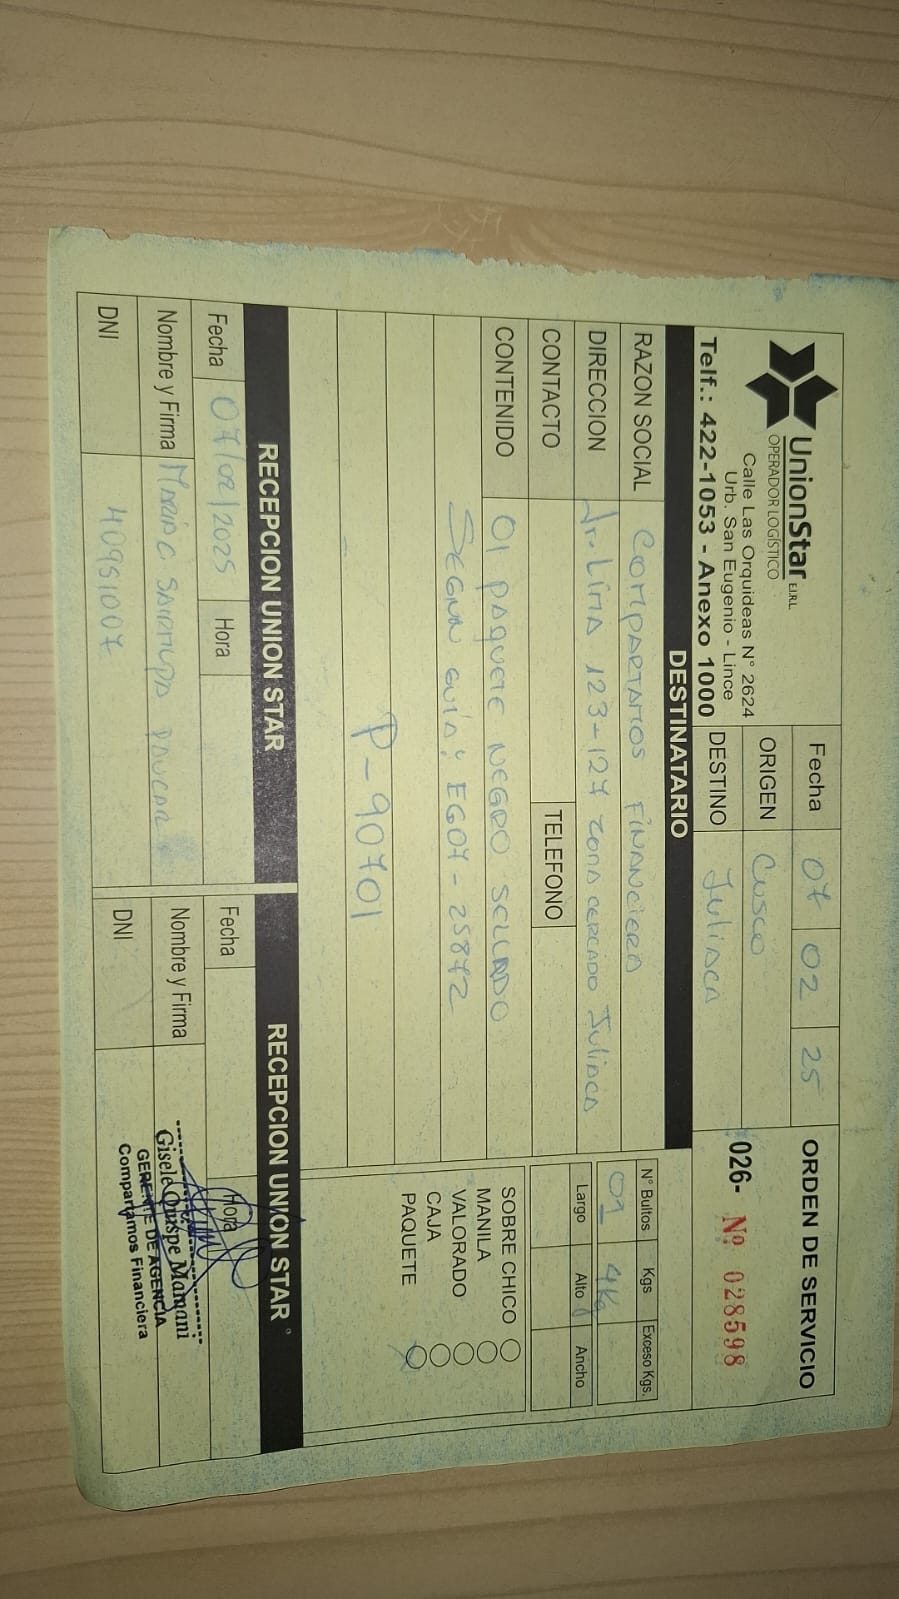 UnionStar E.I.R.L.
OPERADOR LOGÍSTICO
Calle Las Orquideas N° 2624
Urb. San Eugenio - Lince
Telf.: 422-1053 - Anexo 1000
Fecha 07 02 25
ORIGEN Cusco
DESTINO Juliaca
ORDEN DE SERVICIO
026- Nº 028598
DESTINATARIO
RAZON SOCIAL COMPARTAMOS FINANCIERA
DIRECCION Jr. Lima 123-127 zona cercado Juliaca
CONTACTO TELEFONO
CONTENIDO 01 PAQUETE NEGRO SELLADO
SEGUN GUIA: EG07-25872
P-90701
N° Bultos Kgs Exceso Kgs.
01 4Kg
Largo Alto Ancho
SOBRE CHICO
MANILA
VALORADO
CAJA
PAQUETE
RECEPCION UNION STAR
Fecha 07/02/2025 Hora
Nombre y Firma PAUCAR
DNI 40951007
RECEPCION UNION STAR
Fecha Hora
Nombre y Firma
DNI
Gisele Quispe Mamani
GERENTE DE AGENCIA
Compartamos Financiera